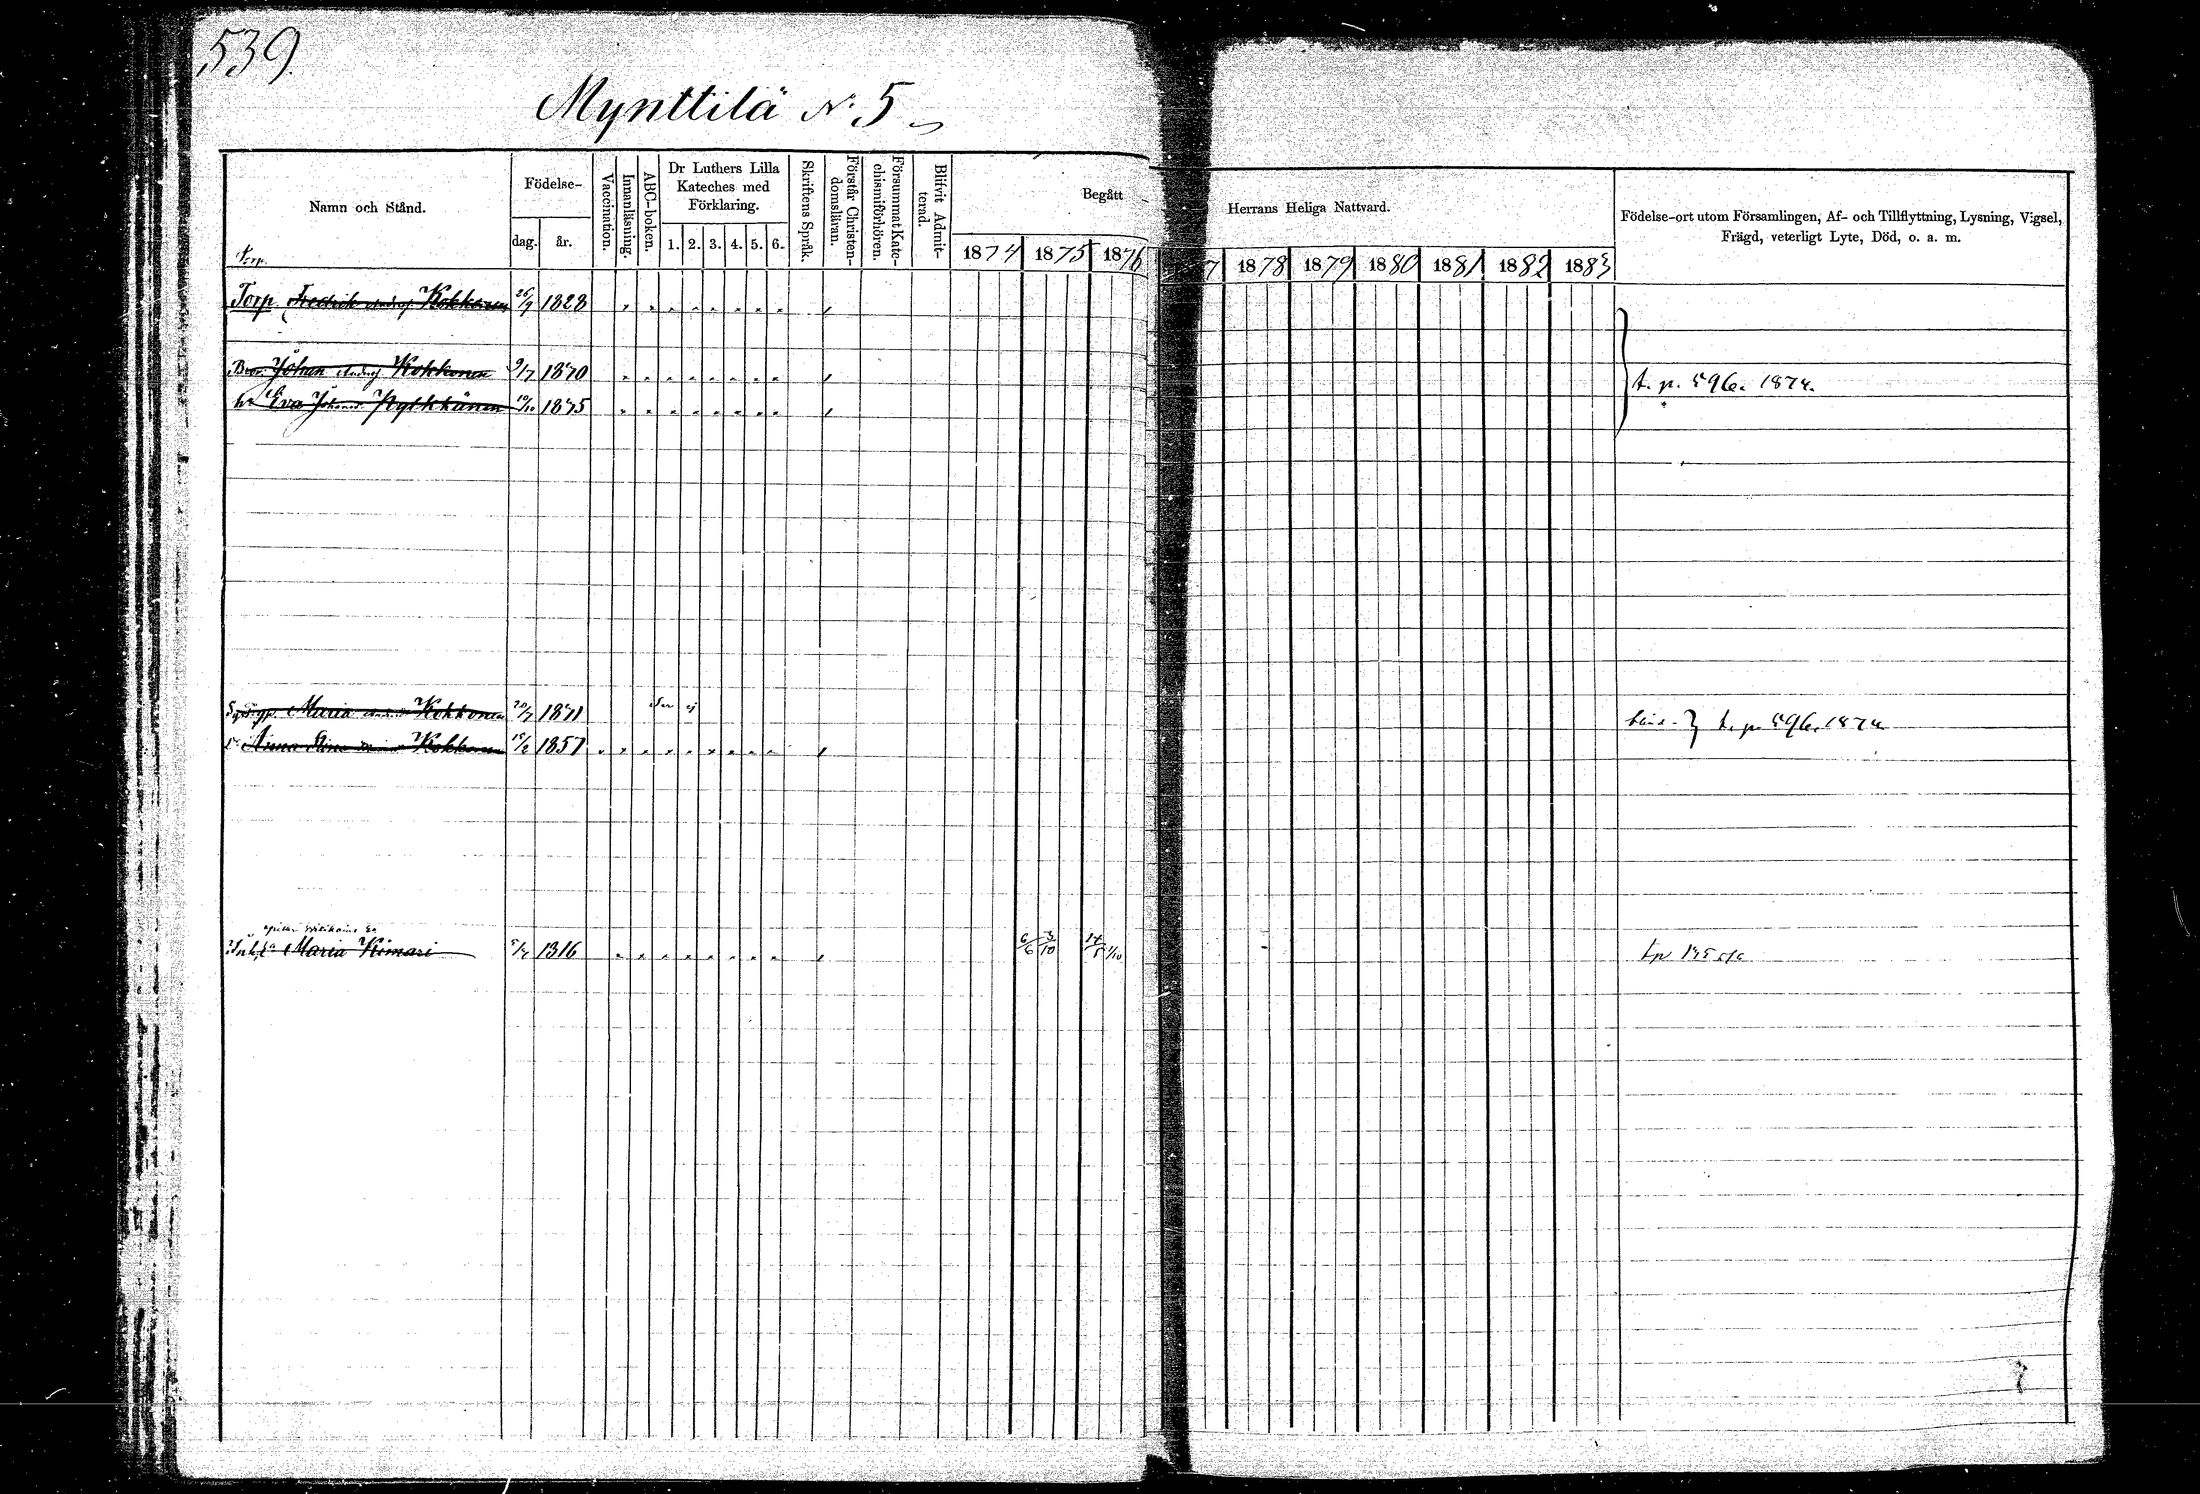 539.
Mynttilä N:o 5
Namn och Stånd.
Födelse-
dag. år.
Vaccination.
Innanläsning.
ABC-boken.
Dr Luthers Lilla
Kateches med
Förklaring.
1. 2. 3. 4. 5. 6.
Skriftens Språk.
Förstår Christen-
domsläran.
Försummat Kate-
chismiförhören.
Blifvit Admit-
terad.
Begått
Herrans Heliga Nattvard.
1874 1875 1876 7 1878 1879 1880 1881 1882 1883
Födelse-ort utom Församlingen, Af- och Tillflyttning, Lysning, Vigsel,
Frägd, veterligt Lyte, Död, o. a. m.
Torp.
Torp. Fredrik Andersf. Kokkonen 26/9 1828
Bror Johan Andersf. Kokkonen 9/7 1840
t. p. 596. 1874.
h. Eva Johansd. Pylkkänen 10/10 1845
Maria Kokkonen 20/7 1841
t. p. 596. 1874
Anna Stina Kokkonen 15/2 1857
Maria Kimari 1816 6/6 3/10 14/5 1/10